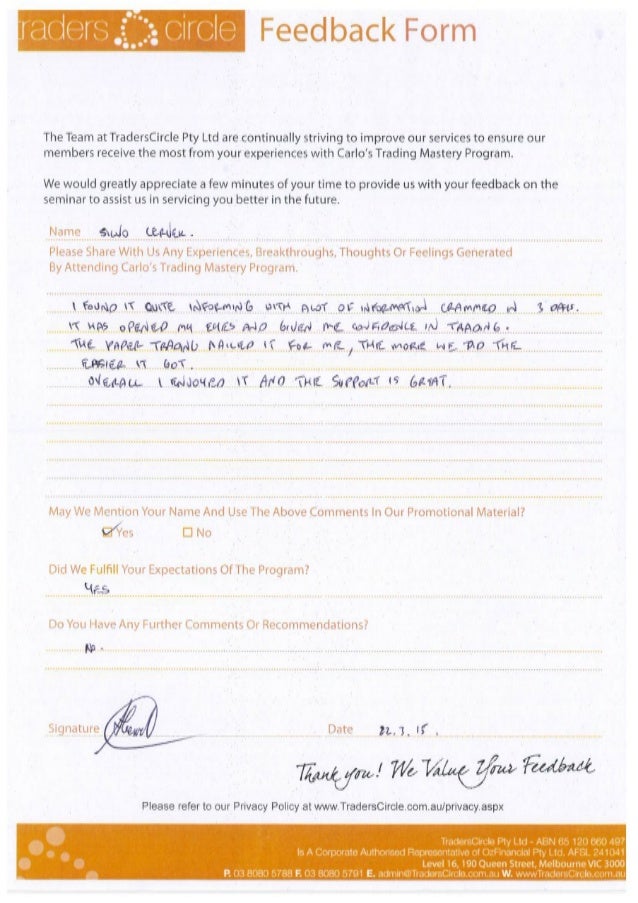 raders circle Feedback Form
The Team at TradersCircle Pty Ltd are continually striving to improve our services to ensure our
members receive the most from your experiences with Carlo's Trading Mastery Program.
We would greatly appreciate a few minutes of your time to provide us with your feedback on the
seminar to assist us in servicing you better in the future.
Name
Please Share With Us Any Experiences, Breakthroughs, Thoughts Or Feelings Generated
By Attending Carlo's Trading Mastery Program.
I FOUND IT QUITE INFORMING WITH ALOT OF INFORMATION CRAMMED IN 3 DAYS.
IT HAS OPENED MY EYES AND GIVEN ME CONFIDENCE IN TRADING.
THE PAPER TRADING NAILED IT FOR ME, THE MORE WE DID THE
EASIER IT GOT.
OVERALL I ENJOYED IT AND THE SUPPORT IS GREAT.
May We Mention Your Name And Use The Above Comments In Our Promotional Material?
Yes No
Did We Fulfill Your Expectations Of The Program?
YES
Do You Have Any Further Comments Or Recommendations?
NO.
Signature Date 22.3.15.
Thank you! We Value Your Feedback
Please refer to our Privacy Policy at www.TradersCircle.com.au/privacy.aspx
TradersCircle Pty Ltd - ABN 65 120 660 497
Is A Corporate Authorised Representative of OzFinancial Pty Ltd, AFSL 241041
Level 16, 190 Queen Street, Melbourne VIC 3000
P. 03 8080 5788 F. 03 8080 5791 E. admin@TradersCircle.com.au W. www.TradersCircle.com.au